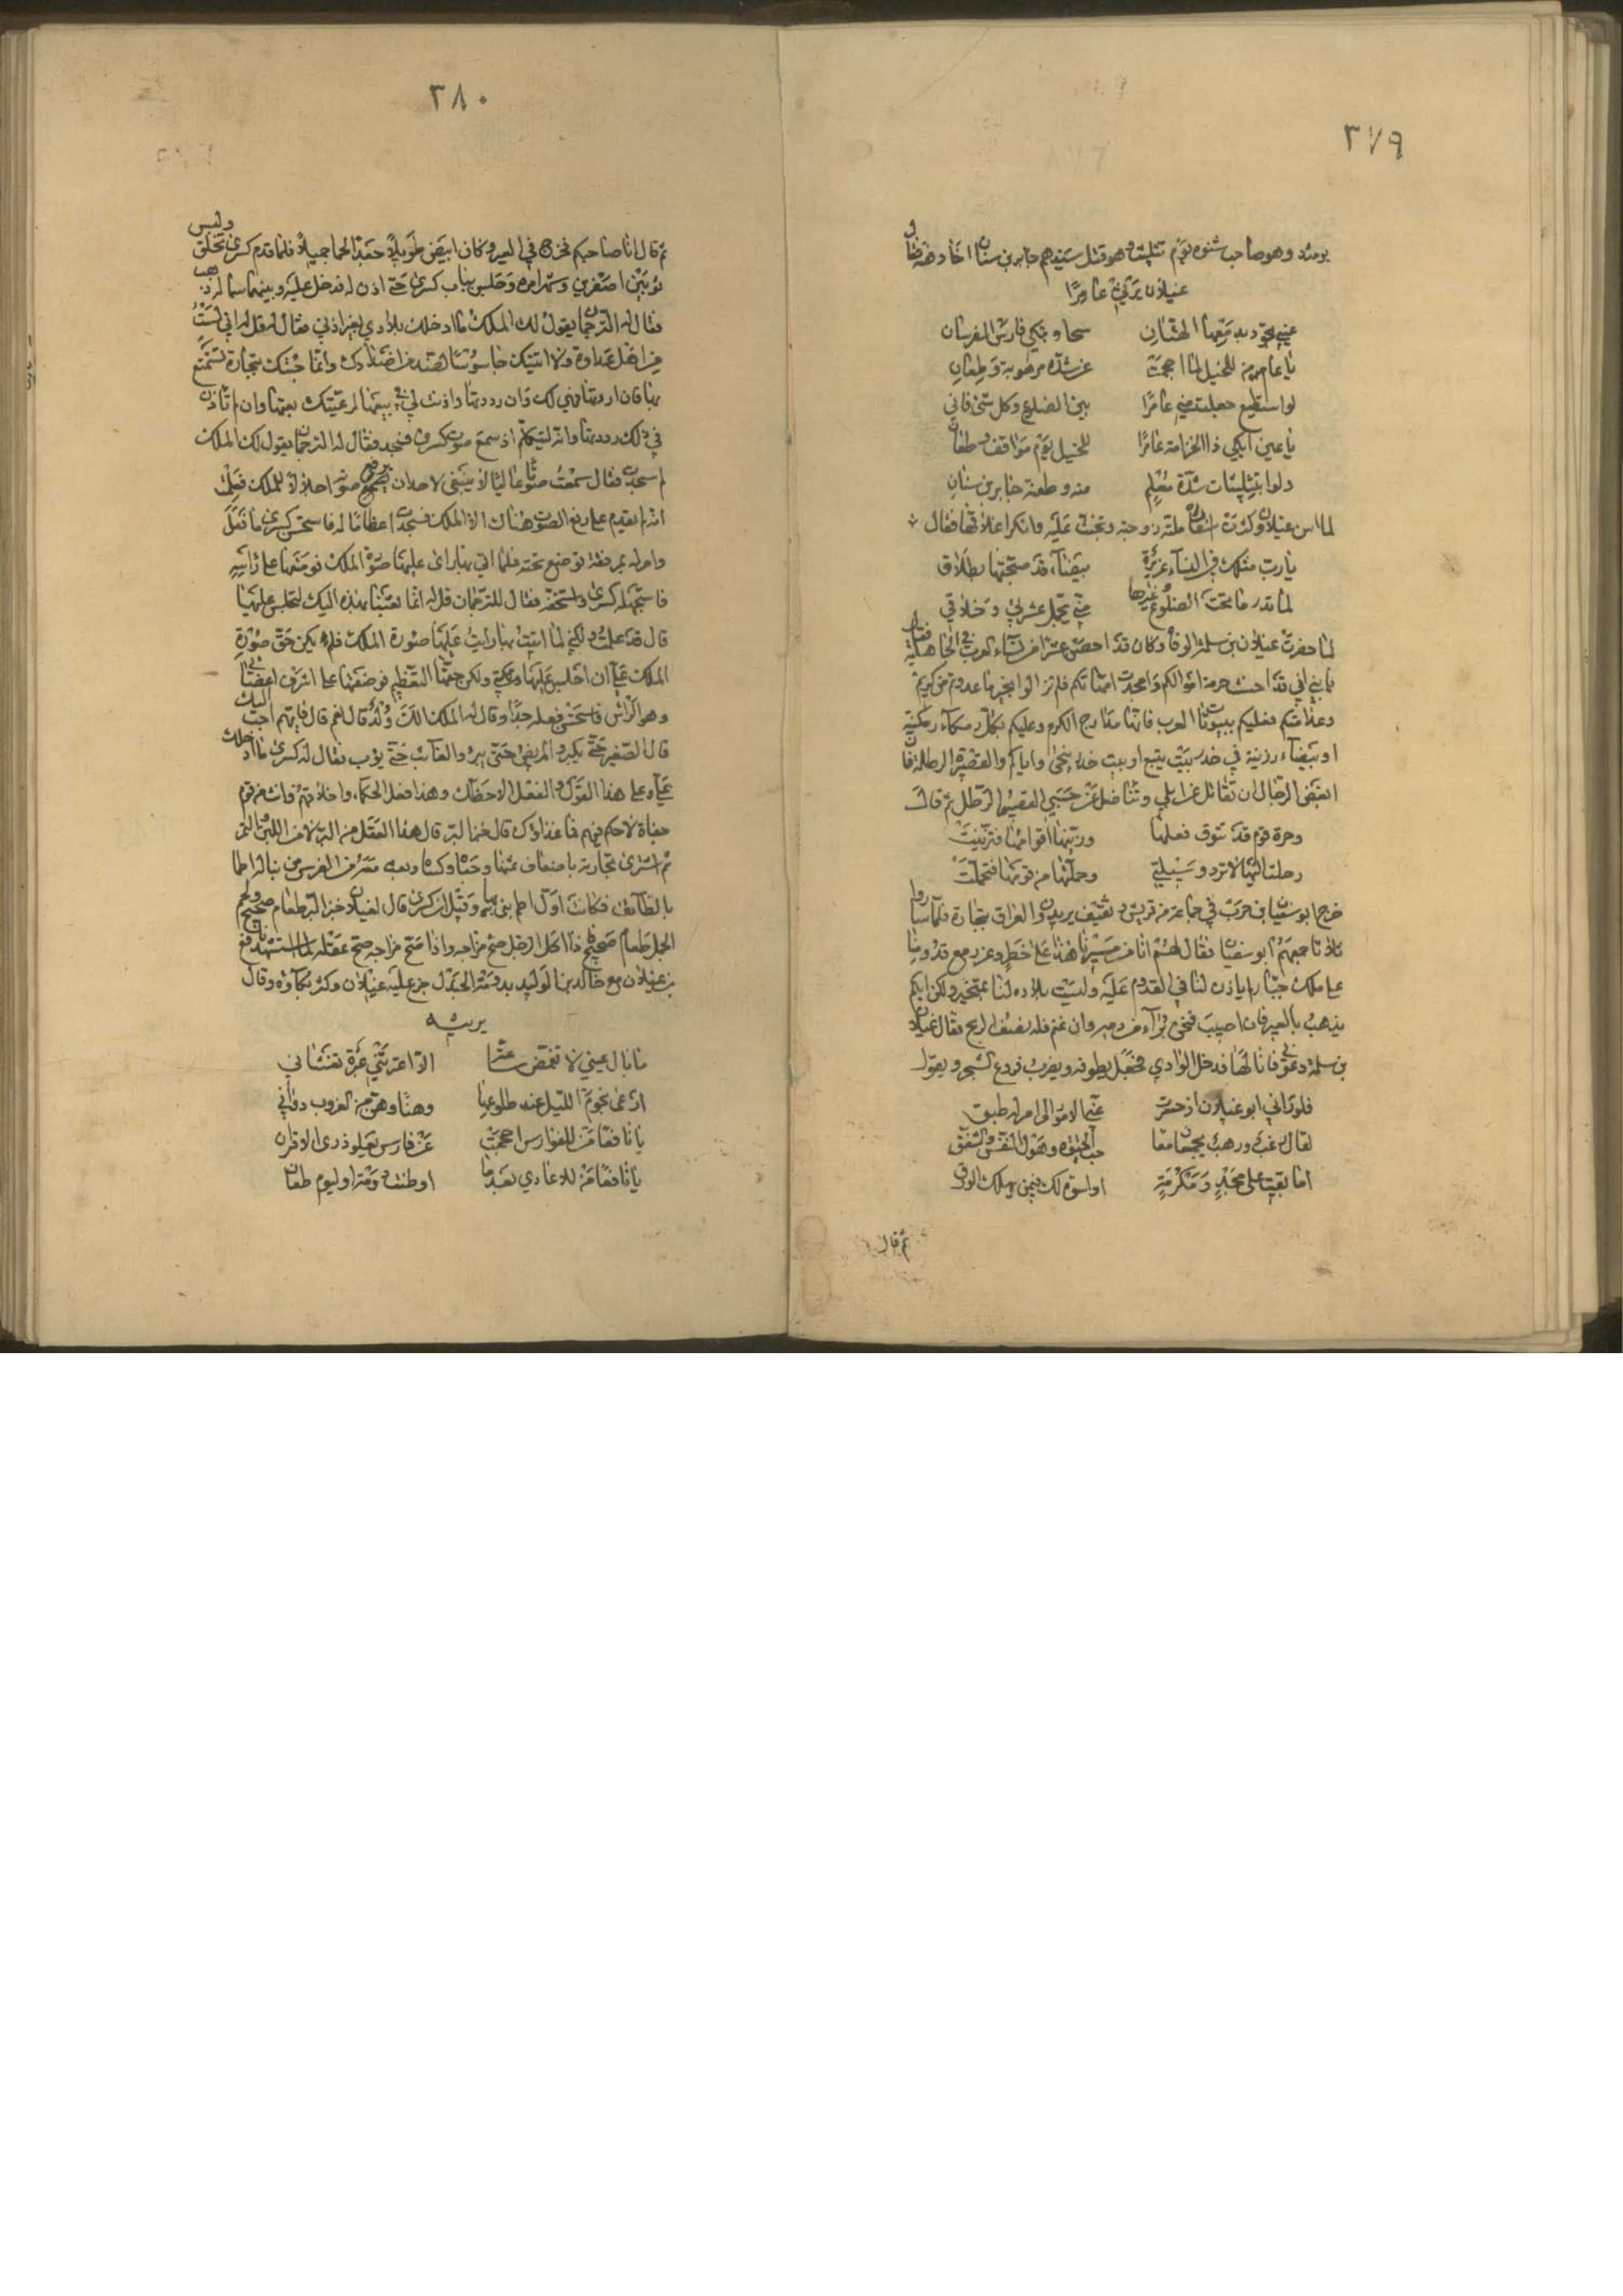 ٣٧٩
يومئذ وهو صاحب شنوه يوم تثليث وهو قتل سيدهم جابر بن سنان اخا دهنه فقال
غيلان يرثي عامرا
عيني تجود بدمعها الهتان سحا وتبكي فارس الفرسان
يا عام من للخيل لما احجمت عن شدة مرهوبة وطعان
لو استطيع جعلت مني عامرا بين الضلوع وكل شئ فاني
يا عين ابكي ذا الخزامة عامرا للخيل يوم مواقف وطعان
وله بتثليثات شدة معلم منه وطعنة جابر بن سنان
لما اسن غيلان وكثرت اسفاره ملته زوجته وتجنت عليه وانكر اخلاقها فقال
يا رب مثلك في النساء غريرة بيضاء قد متعتها بطلاق
لم تدر ما تحت الضلوع وغرها مني تجمل عشرتي وخلاقي
لما حضرت غيلان بن سلمة الوفاة وكان قد احصن عشرا من نساء العرب في الجاهلية فقال
يا بني اني قد احسنت خدمة اموالكم وامجدت امهاتكم فلم تزالوا بخير ما غدوتم من كريم
وغذا منكم فعليكم ببيوتات العرب فانها معارج الكرم وعليكم بكل رمكاء ركينة
او بيضاء رزينة في خدر بيت يتبع او بيت جد يرتجى واياكم والقصيرة الرطلة فان
ابغض الرجال ان يقاتل عن ابلي ويناضل عن حسبي القصير الرطل ثم قال
وحرة قوم قد تنوق فعلها وزينها اقوامها فتزينت
رحلت اليها لا ترد وسيلتي وحملتها من قومها فتحملت
خرج ابو سفيان بن حرب في جماعة من قريش وثقيف يريدون العراق بتجارة فلما ساروا
ثلاثا جمعهم ابو سفيان فقال لهم انا من مسيرنا هذا على خطر وغرر مع قدومنا
على ملك جبار لم ياذن لنا في القدوم عليه وليست بلاده لنا بمتجر ولكن ايكم
يذهب بالعير فان اصيب فنحن براء من دمه وان غنم فله نصف الربح فقال غيلان
بن سلمة دعوني فانا لها فدخل الوادي فجعل يطوفه ويضرب فروع الشجر ويقول
فلو راني ابو غيلان اذ حسرت عني الامور الى امر له طبق
لقال رغب ورهب يجمعان معا حب الحيوة وهول النفس والشفق
اما بقيت على مجد ومكرمة او اسوة لك فيمن يهلك الورق
ثم قال
٣٨٠
ثم قال انا صاحبكم فخرج في العير وكان ابيض طويلا جعدا لحما جميلا فلما قدم كسرى تخلق ولبس
ثوبين اصفرين وشهر امره وجلس بباب كسرى حتى اذن له فدخل عليه وبينهما شباك من ذهب
فقال له الترجمان يقول لك الملك ما ادخلك بلادي بغير اذني فقال له قل له اني لست
من اهل عداوة ولا اتيتك جاسوسا لضد من اضدادك وانما جئتك بتجارة تستمتع
بها فان اردتها فهي لك وان رددتها واذنت لي في بيعها لرعيتك بعتها وان لم تاذن
في ذلك رددتها وانه ليتكلم اذ سمع صوت كسرى فسجد فقال له الترجمان يقول لك الملك
لم سجدت فقال سمعت صوتا عاليا لا ينبغي لاحد ان يرفع صوته اجلالا للملك فعلمت
انه لم يقدم على رفع الصوت هناك الا الملك فسجدت اعظاما له فاستحسن كسرى ما فعل
وامر له بمرفقة توضع تحته فلما اتي بها راى عليها صورة الملك فوضعها على راسه
فاستجهله كسرى واستخفه فقال للترجمان قل له انما بعثنا بهذه اليك لتجلس عليها
قال قد علمت ولكني لما اتيت بها رايت عليها صورة الملك فلم يكن حق صورة
الملك على ان اجلس عليها ولكن حقها التعظيم فوضعتها على اشرف اعضائي
وهو الراس فاستحسن فعله جدا وقال له الملك الك ولد قال نعم قال فايهم احب اليك
قال الصغير حتى يكبر والمريض حتى يبرء والغائب حتى يؤب فقال له كسرى ما ادخلك
علي ودلك على هذا القول والفعل الا حظك وهذا فعل الحكماء واخلاقهم وانت من قوم
جفاة لا حكم فيهم فما غذاؤك قال خبز البر قال هذا العقل من البر لا من اللبن والتمر
ثم اشترى تجارته باضعاف ثمنها وحباه وكساه وبعث معه من الفرس من بنا له اطما
بالطائف فكانت اول اطم بنى بها وقيل ان كسرى قال لغيلان خبز البر طعام صحيح ولحم
الجمل طعام صحيح فاذا اكل الرجل صح مزاجه واذا صح مزاجه صح عقله لما استشهد نافع
بن غيلان مع خالد بن الوليد بدومة الجندل جزع عليه غيلان وكثر بكاؤه وقال
يرثيه
ما بال عيني لا تغمض ساعة الا اعترتني عبرة تغشاني
ارعى نجوم الليل عند طلوعها وهنا وهن من الغروب دواني
يا نافعا من للفوارس احجمت عن فارس يعلو ذرى الاقران
يا نافعا من للاعادي بعدما اوطنت ومنزاو ليوم طعان